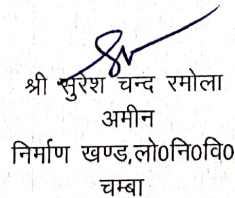 श्री सुरेश चन्द रमोला
अमीन
निर्माण खण्ड,लो0नि0वि0
चम्बा